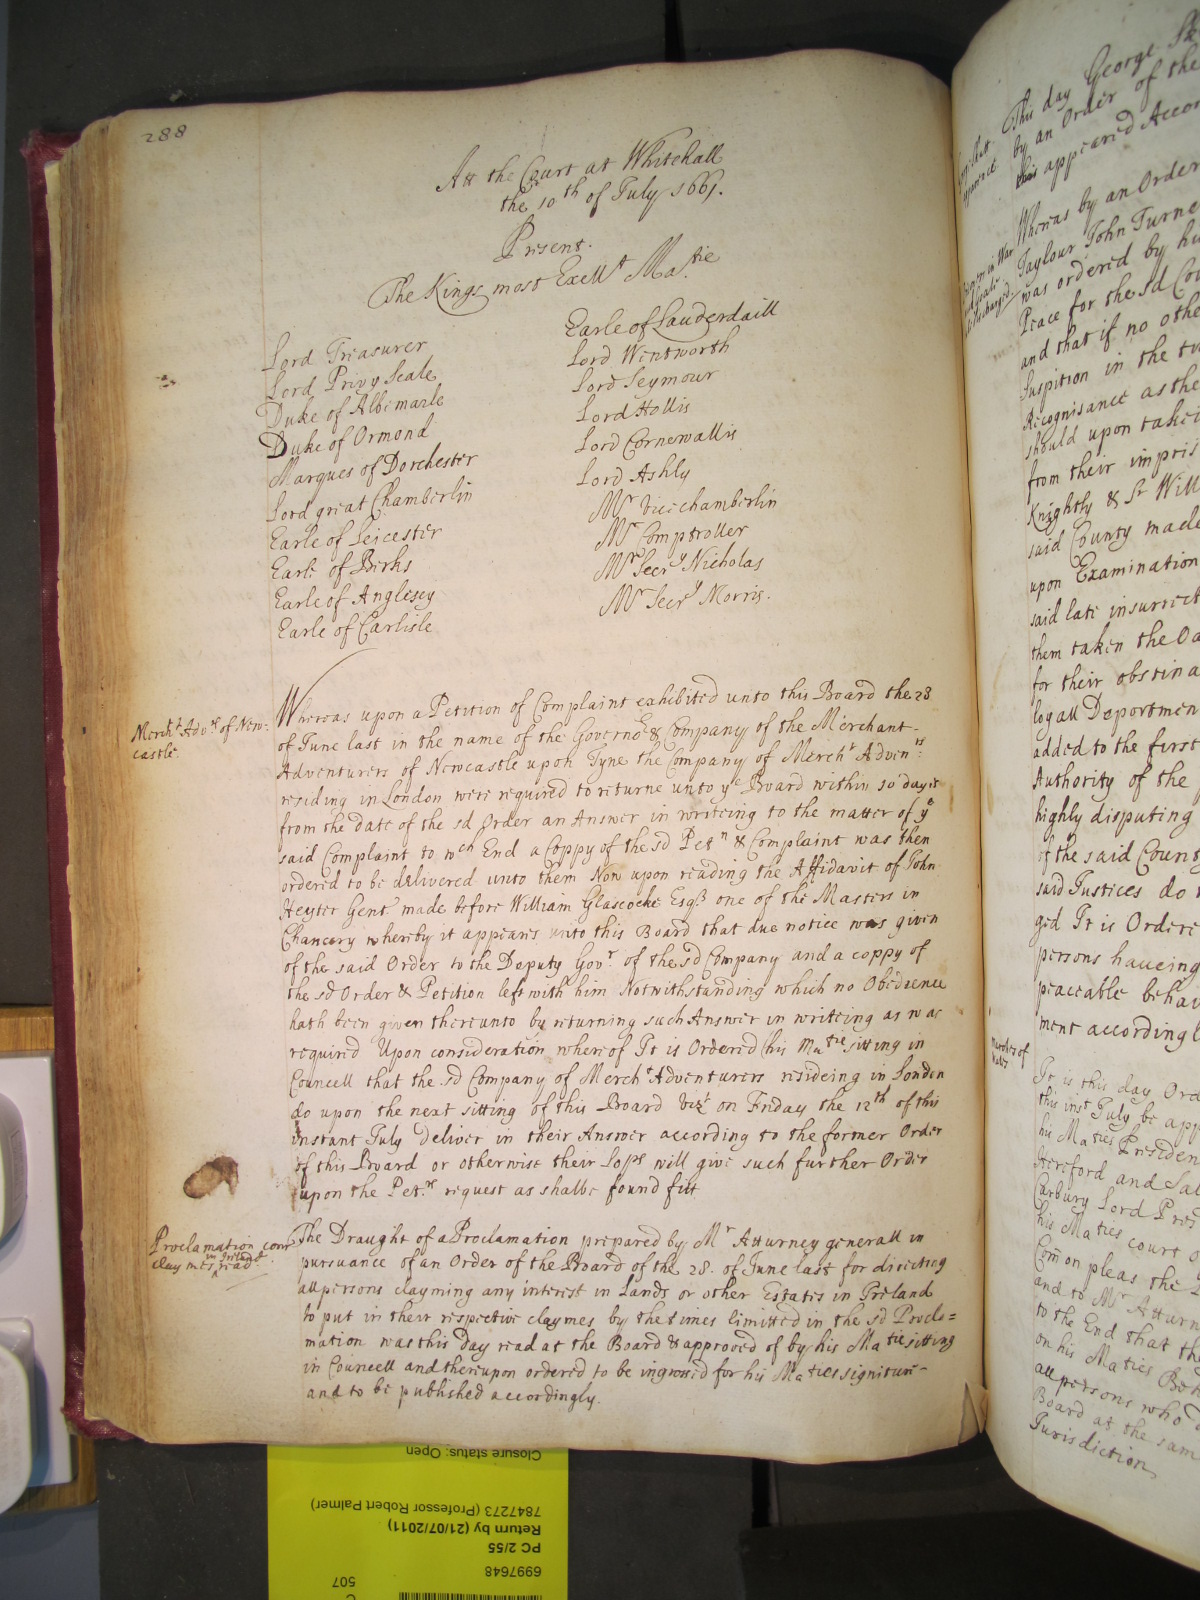 288
Att the Court at Whitehall
the 10th of July 1661.
Present.
The Kings most Excellt Matie
Lord Treasurer
Lord Privy Seale
Duke of Albemarle
Duke of Ormond
Marques of Dorchester
Lord great Chamberlin
Earle of Leicester
Earle of Birks
Earle of Anglesey
Earle of Carlisle
Earle of Lauderdaill
Lord Wentworth
Lord Seymour
Lord Hollis
Lord Cornewallis
Lord Ashly
Mr Vicechamberlin
Mr Comptroller
Mr Secry Nicholas
Mr Secry Morris.
Mercht Advrs of New-
castle.
Whereas upon a Petition of Complaint exhibited unto this Board the 28
of June last in the name of the Governor & Company of the Merchant-
Adventurers of Newcastle upon Tyne the Company of Mercht Advenrs:
residing in London were required to returne unto ye Board within 10 dayes
from the date of the sd Order an Answer in writeing to the matter of ye
said Complaint to wch End a Coppy of the sd Petn & Complaint was then
ordered to be delivered unto them Now upon reading the Affidavit of John
Heyter Gent made before William Glascocke Esqr one of the Masters in
Chancery whereby it appeares unto this Board that due notice was given
of the said Order to the Deputy Govr. of the sd Company and a coppy of
the sd Order & Petition left with him Notwithstanding which no Obedience
hath been given thereunto by returning such Answer in writeing as was
required Upon consideration whereof It is Ordered (his Matie sitting in
Councell that the sd Company of Mercht Adventurers resideing in London
do upon the next sitting of this Board vizt on Friday the 12th of this
instant July deliver in their Answer according to the former Order
of this Board or otherwise their Lops will give such further Order
upon the Petrs request as shalbe found fitt
Proclamation conc
claymes in Ireland read
The Draught of a Proclamation prepared by Mr Atturney generall in
pursuance of an Order of the Board of the 28. of June last for directing
all persons clayming any interest in Lands or other Estates in Ireland
to put in their respective claymes by the times limitted in the sd Procla=
mation was this day read at the Board & approved of by his Matie sitting
in Councell and thereupon ordered to be ingrossed for his Maties signiture-
and to be published accordingly.
This day George
by an Order of the
this appeared Accor
Whereas by an Order
Taylour John Turne
was ordered by hi
Peace for the sd Cou
and that if no othe
Suspition in the
Recognisance as the
should upon takei
from their impris
Knightly & Sr Will
said County made
upon Examination
said late insurrect
them taken the Oa
for their obstina
logall Deportmen
added to the first
Authority of the
highly disputing
of the said County
said Justices do
ged It is Ordere
persons haveing
peaceable behav
ment according
It is this day Ord
this inst July be app
his Maties Presiden
Hereford and Sal
Carbury Lord Pres
his Maties court o
Common pleas the
and to Mr Atturn
to the End that the
on his Maties Beh
all persons who
Board at the sam
Jurisdiction
Closure status: Open
7847273 (Professor Robert Palmer)
Return by (21/07/2011)
PC 2/55
6997648
507